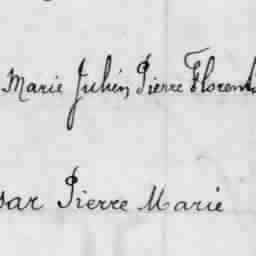 Marie Julien Pierre Florent
sar Pierre Marie